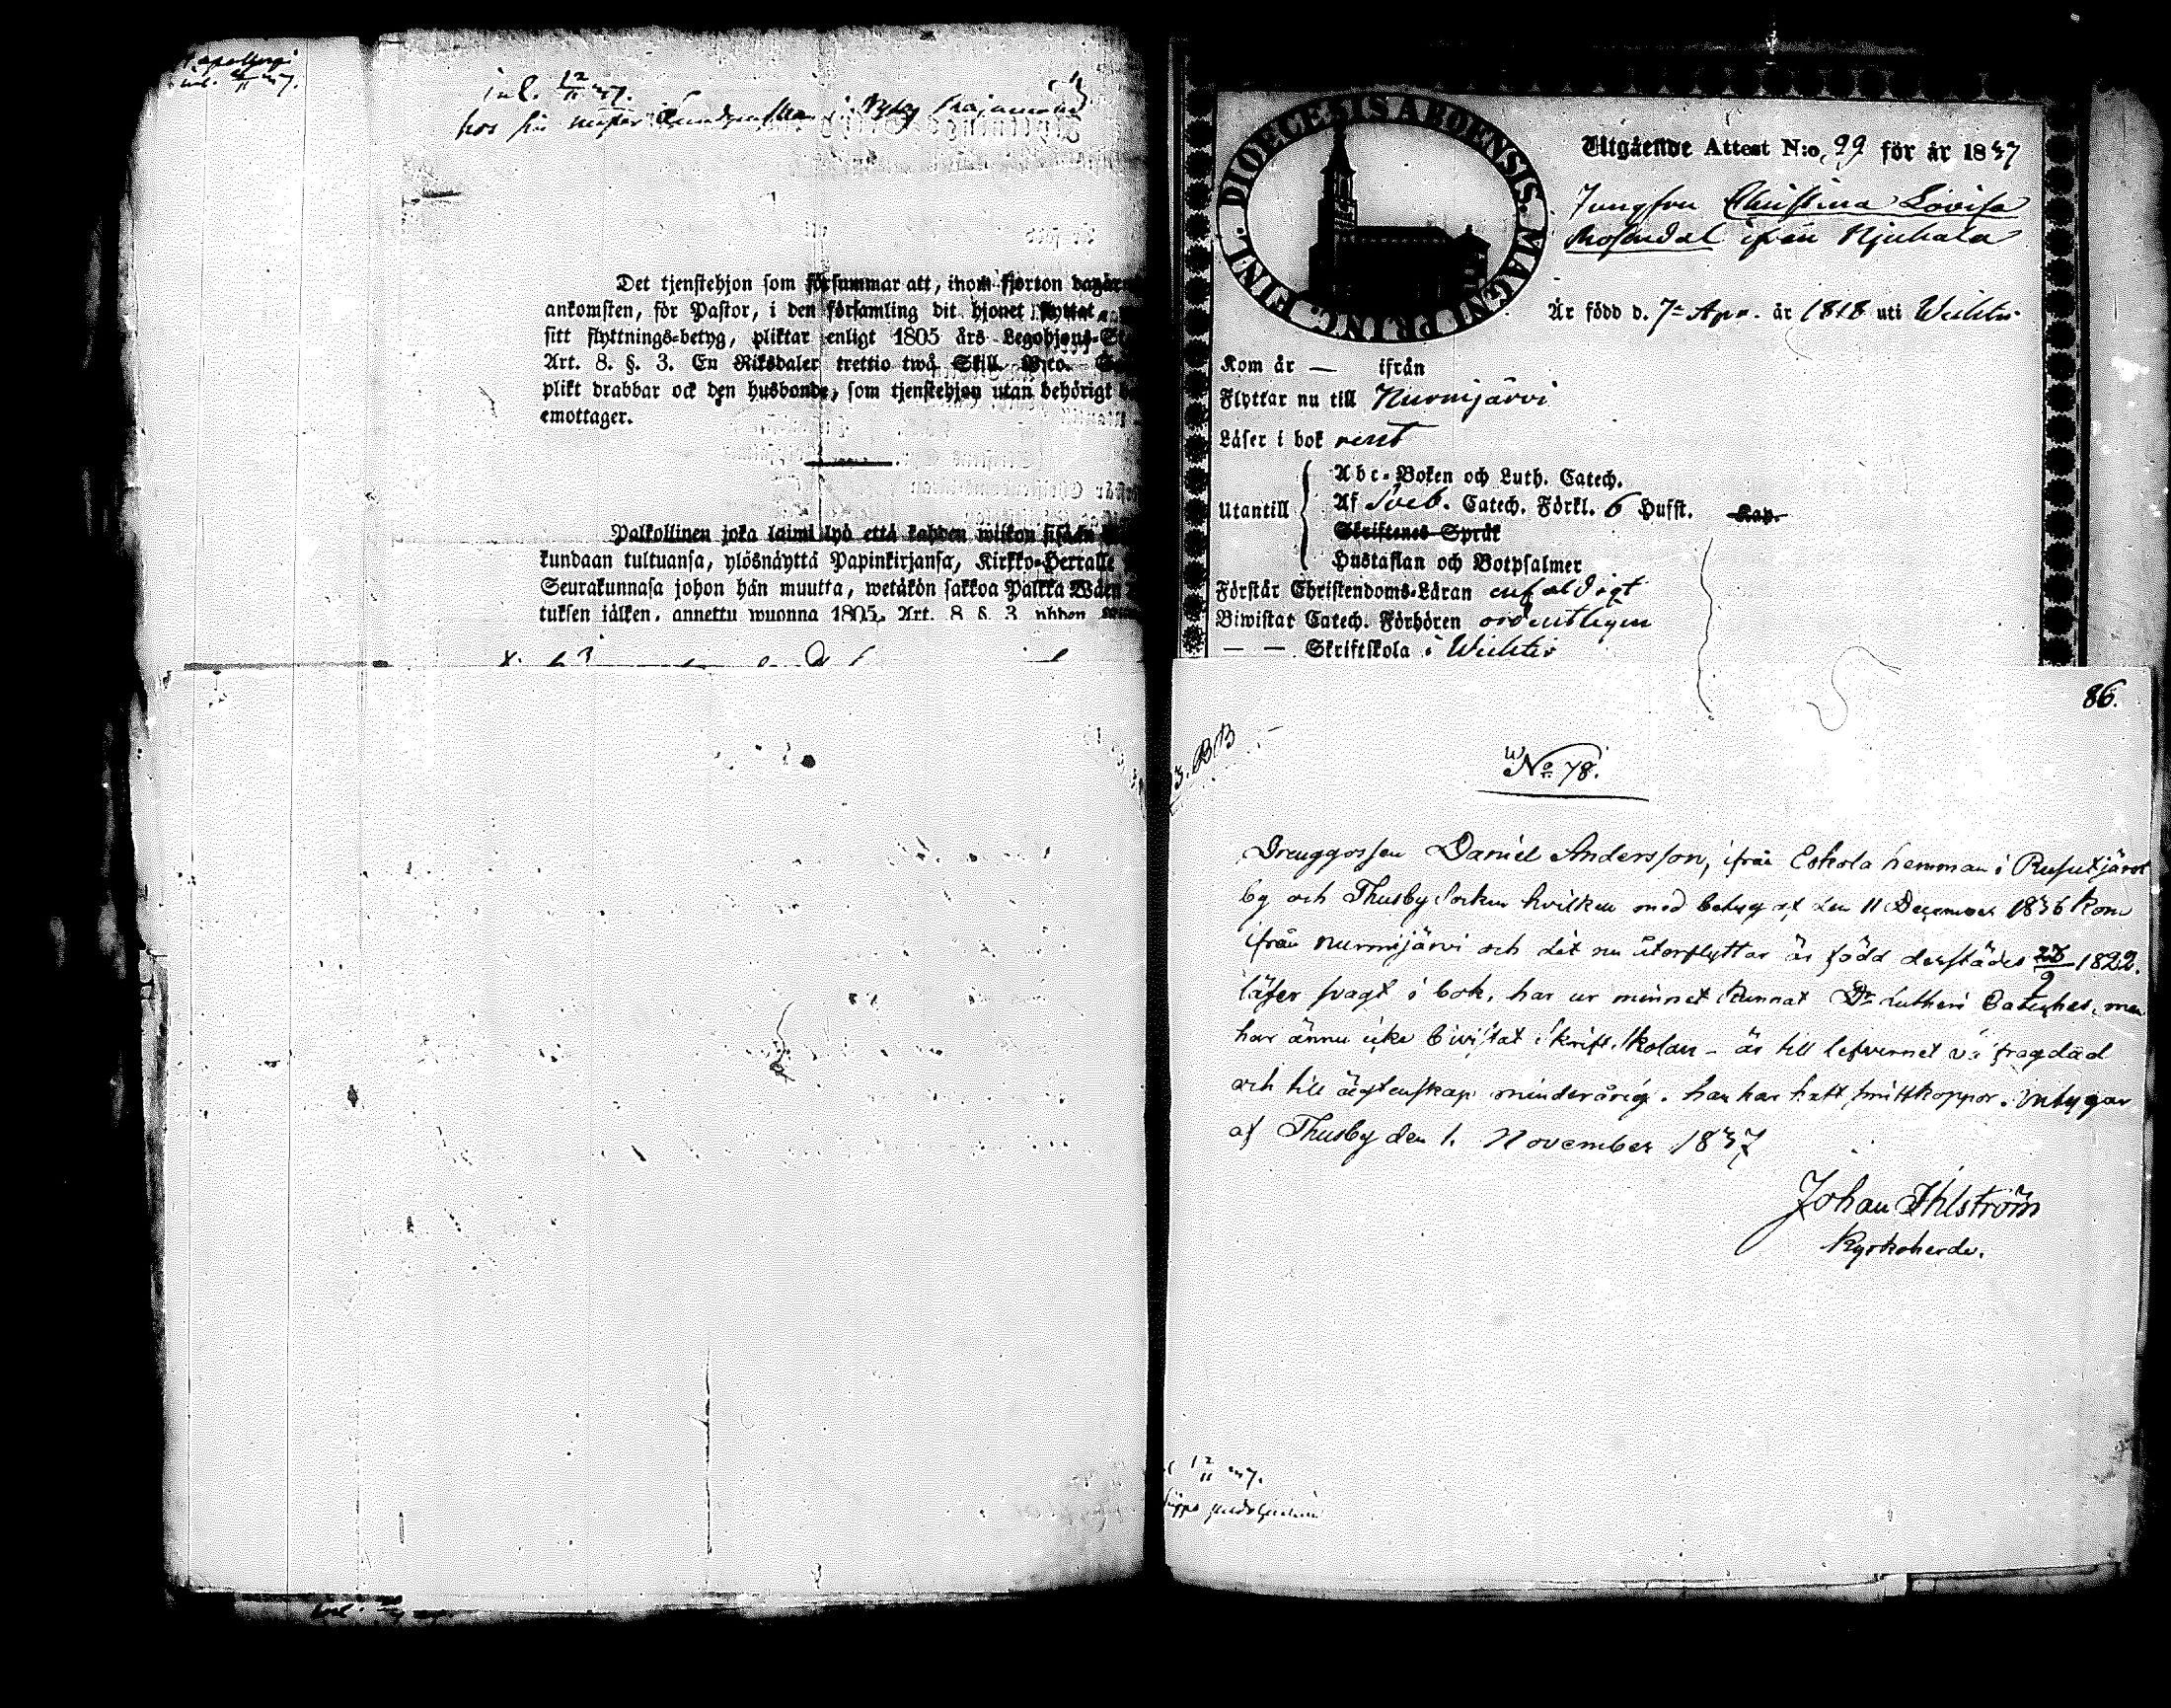 inl. 12/11 37.
Det tjenstehjon som försummar att, inom fjorton dagar
ankomsten, för Pastor, i den församling dit hjonet flyttat
sitt flyttnings-betyg, pliktar enligt 1805 års Legohjons-S
Art. 8. §. 3. En Riksdaler trettio twå Skill. B:co.
plikt drabbar ock den husbonde, som tjenstehjon utan behörigt
emottager.
Palkollinen joka laimi lyö että kahden wiikon sisään
kundaan tultuansa, ylösnäyttä Papinkirjansa, Kirkko-Herralle
Seurakunnasa johon hän muutta, wetäkön sakkoa Palkka Wäen
tuksen jälken, annettu wuonna 1805. Art. 8 §. 3
DIOECESIS ABOENSIS. MAGNI PRINC. FINL.
Utgående Attest N:o 99 för år 1837
Jungfru Christina Lovisa
ifrån
Är född d. 7de Apr. år 1818 uti Wichtis
Kom år — ifrån
Flyttar nu till Nurmijärvi
Läser i bok rent
Abc-Boken och Luth. Catech.
Utantill Af Sveb. Catech. Förkl. 6 Hufst. Kap.
Skriftenes Språk
Hustaflan och Botpsalmer
Förstår Christendoms-Läran enfaldigt
Biwistat Catech. Förhören ordentligen
— — Skriftskola i Wichtis
86.
No 78.
Drenggossen Daniel Andersson, ifrån Eskola hemman i Rusutjärvi
by och Thusby Socken hvilken med betyg af den 11 December 1836 kom
ifrån Nurmijärvi och dit nu återflyttar är född derstädes 1822.
läser svagt i bok, har ur minnet kunnat Dr Lutheri Cateches, men
har ännu icke bivistat Skriftskolan - är till lefvernet
och till ägtenskap minderårig. han har haft smittkoppor. intygar
af Thusby den 1. November 1837
Johan Ihlström
Kyrkoherde.
12/11 37.